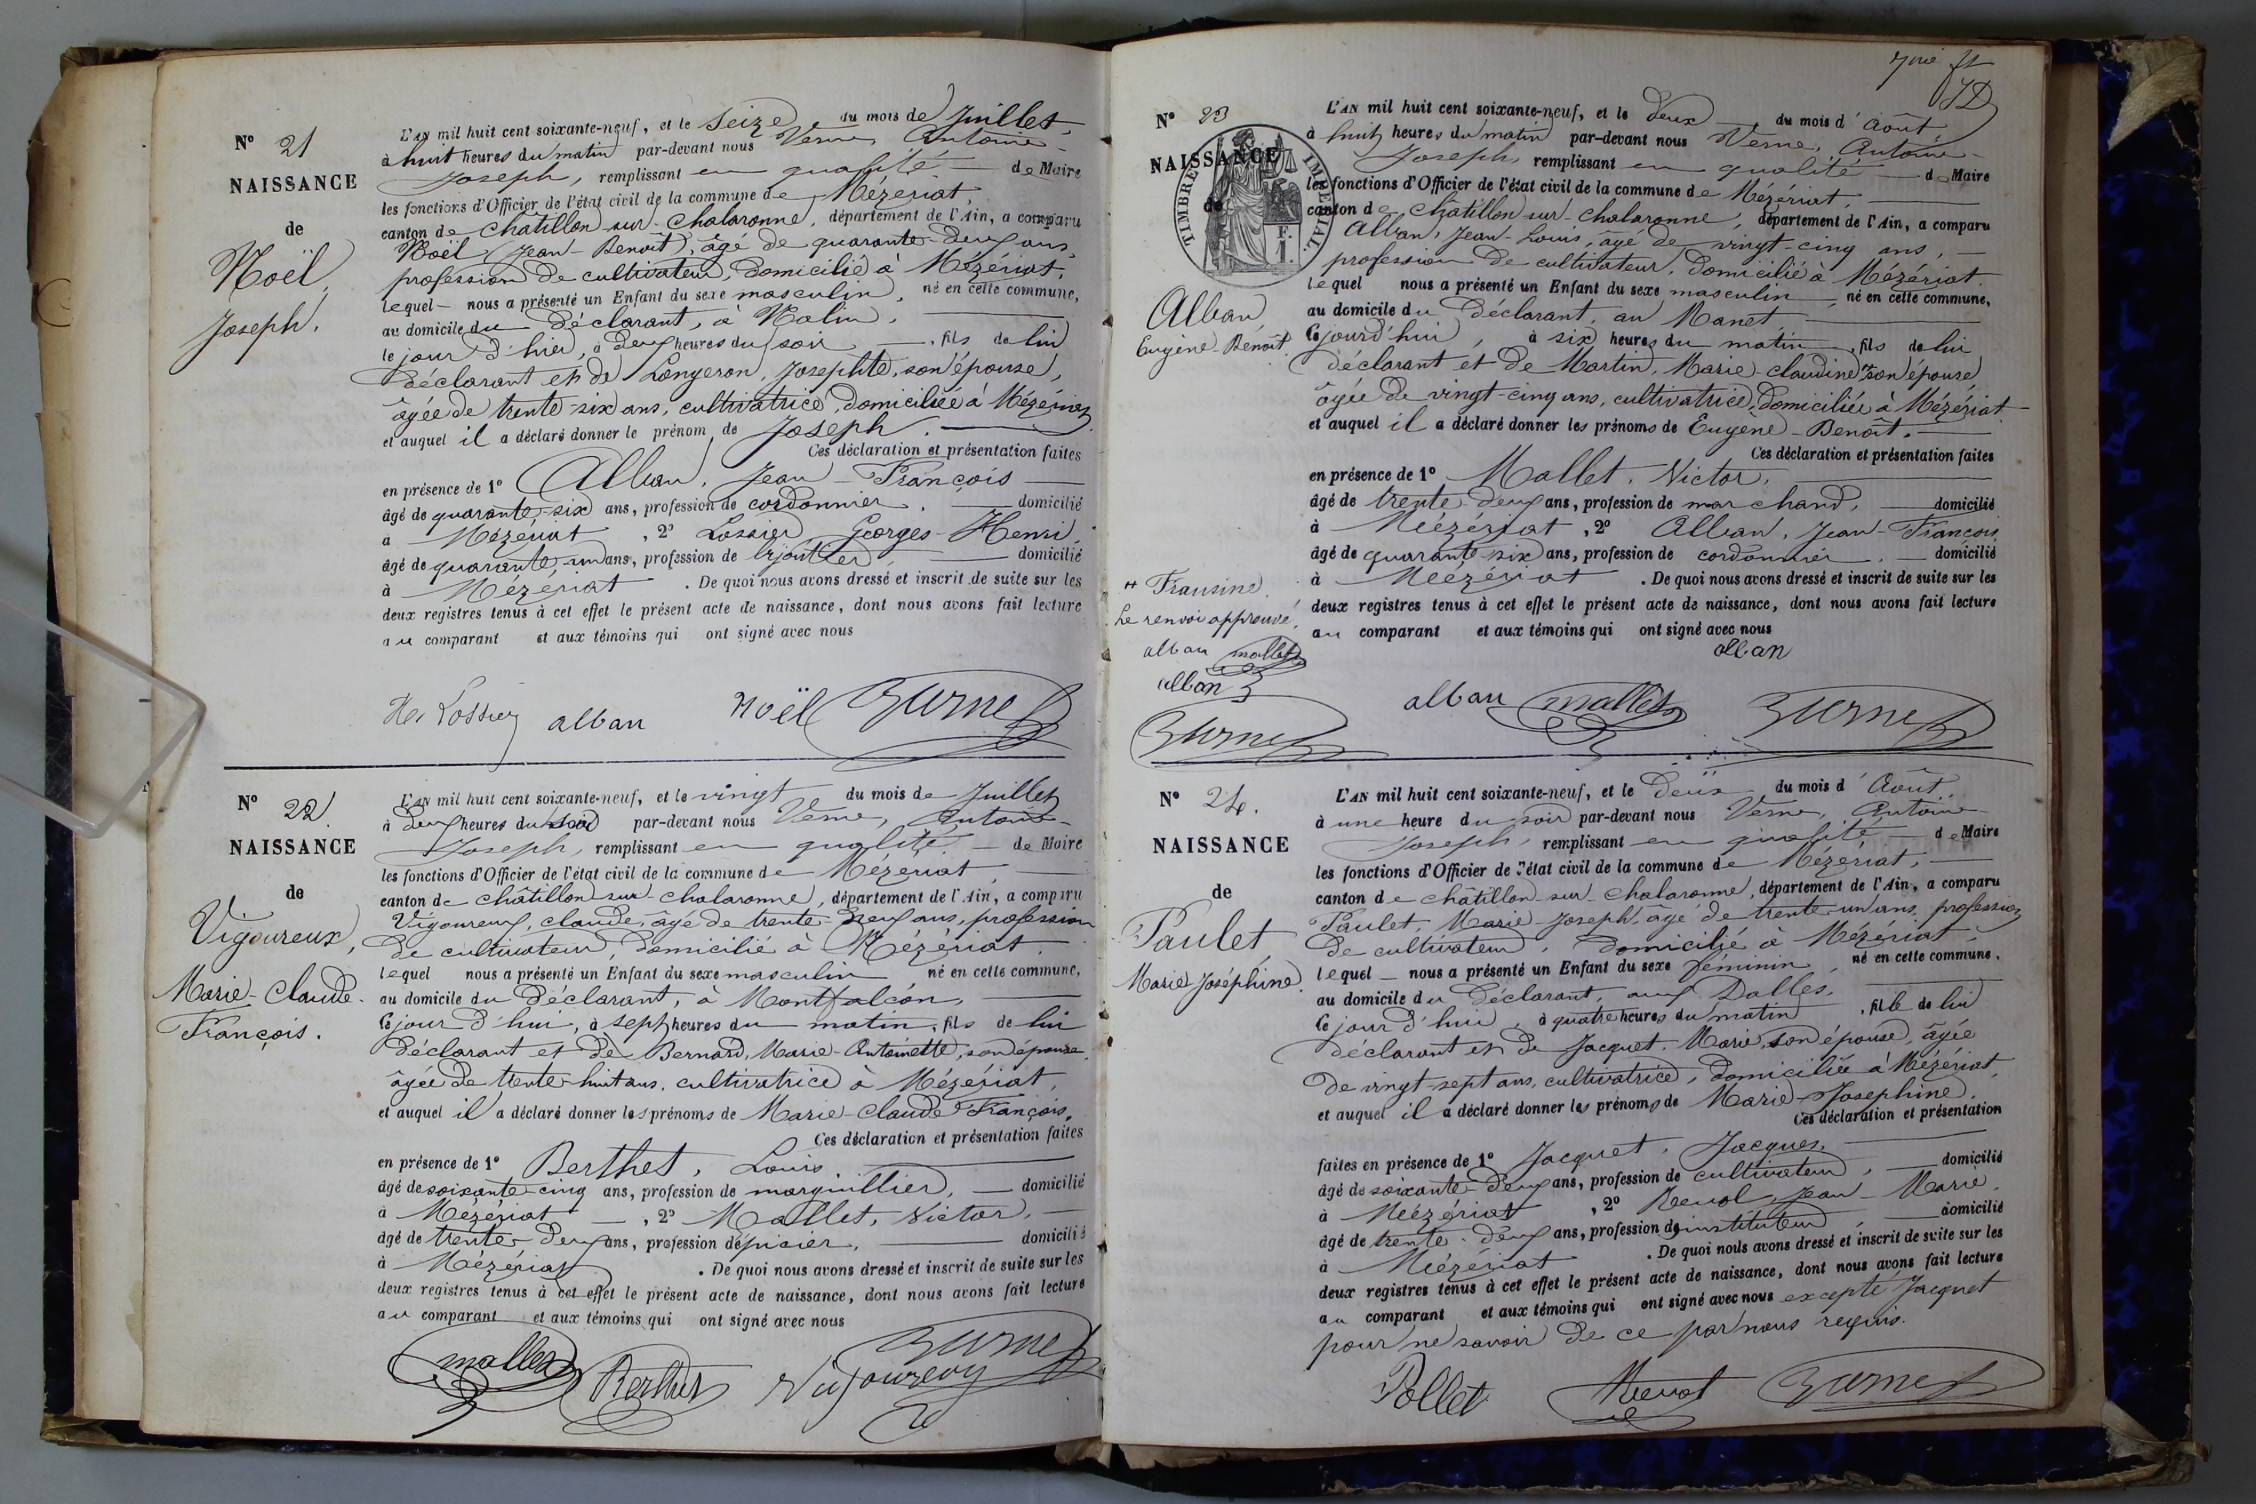 N° 21
NAISSANCE
de
Noël,
Joseph.
L'AN mil huit cent soixante-neuf, et le Seize du mois de Juillet,
à huit heures du matin par-devant nous Verne, Antoine-
Joseph, remplissant en qualité de Maire
les fonctions d'Officier de l'état civil de la commune de Mézériat,
canton de Châtillon-sur-Chalaronne, département de l'Ain, a comparu
Noël, Jean-Benoit, âgé de quarante-deux ans,
profession de cultivateur, domicilié à Mézériat,
lequel nous a présenté un Enfant du sexe masculin, né en cette commune,
au domicile du Déclarant, à
le jour d'hier, à deux heures du soir, fils de lui
déclarant et de Longeron, Josephte, son épouse,
âgée de trente-six ans, cultivatrice, domiciliée à Mézériat
et auquel il a déclaré donner le prénom de Joseph.
Ces déclaration et présentation faites
en présence de 1° Alban, Jean-François
âgé de quarante-six ans, profession de cordonnier, domicilié
à Mézériat, 2° Lossier Georges-Henri,
âgé de quarante-un ans, profession de bijoutier, domicilié
à Mézériat. De quoi nous avons dressé et inscrit de suite sur les
deux registres tenus à cet effet le présent acte de naissance, dont nous avons fait lecture
au comparant et aux témoins qui ont signé avec nous
Lossier alban Noël Verne
N° 22
NAISSANCE
de
Vigoureux,
Marie-Claude-
François.
L'AN mil huit cent soixante-neuf, et le vingt du mois de Juillet
à deux heures du soir par-devant nous Verne, Antoine-
Joseph, remplissant en qualité de Maire
les fonctions d'Officier de l'état civil de la commune de Mézériat,
canton de Châtillon-sur-Chalaronne, département de l'Ain, a comparu
Vigoureux, Claude, âgé de trente-neuf ans, profession
de cultivateur, domicilié à Mézériat,
lequel nous a présenté un Enfant du sexe masculin né en cette commune,
au domicile du Déclarant, à Montfalcon,
ce jour d'hui, à sept heures du matin, fils de lui
déclarant et de Bernard, Marie-Antoinette, son épouse,
âgée de trente-huit ans, cultivatrice à Mézériat,
et auquel il a déclaré donner les prénoms de Marie-Claude-François.
Ces déclaration et présentation faites
en présence de 1° Berthet, Louis,
âgé de soixante-cinq ans, profession de marguillier, domicilié
à Mézériat, 2° Mallet, Victor,
âgé de trente-deux ans, profession d'épicier, domicilié
à Mézériat. De quoi nous avons dressé et inscrit de suite sur les
deux registres tenus à cet effet le présent acte de naissance, dont nous avons fait lecture
au comparant et aux témoins qui ont signé avec nous
mallet Berthet Vigoureux Verne
N° 23
NAISSANCE
de
TIMBRE IMPERIAL.
F.
1.
Alban,
Eugène-Benoît.
L'AN mil huit cent soixante-neuf, et le deux du mois d'Août,
à huit heures du matin par-devant nous Verne, Antoine-
Joseph, remplissant en qualité de Maire
les fonctions d'Officier de l'état civil de la commune de Mézériat,
canton de Châtillon-sur-Chalaronne, département de l'Ain, a comparu
Alban, Jean-Louis, âgé de vingt-cinq ans,
profession de cultivateur, domicilié à Mézériat.
lequel nous a présenté un Enfant du sexe masculin, né en cette commune,
au domicile du Déclarant, au Manet,
ce jourd'hui, à six heures du matin, fils de lui
déclarant et de Martin, Marie-Claudine son épouse
âgée de vingt-cinq ans, cultivatrice, domiciliée à Mézériat
et auquel il a déclaré donner les prénoms de Eugène-Benoît.
Ces déclaration et présentation faites
en présence de 1° Mallet, Victor,
âgé de trente-deux ans, profession de marchand, domicilié
à Mézériat, 2° Alban, Jean-François,
âgé de quarante-six ans, profession de cordonnier, domicilié
à Mézériat. De quoi nous avons dressé et inscrit de suite sur les
deux registres tenus à cet effet le présent acte de naissance, dont nous avons fait lecture
au comparant et aux témoins qui ont signé avec nous
Fransine.
Le renvoi approuvé.
alban mallet
alban
Verne
alban
alban mallet Verne
N° 24.
NAISSANCE
de
Paulet,
Marie Joséphine.
L'AN mil huit cent soixante-neuf, et le Deux du mois d'Août,
à une heure du soir par-devant nous Verne, Antoine
Joseph, remplissant en qualité de Maire
les fonctions d'Officier de l'état civil de la commune de Mézériat,
canton de Châtillon-sur-Chalaronne, département de l'Ain, a comparu
Paulet, Marie Joseph, âgé de trente-un ans, profession
de cultivateur, domicilié à Mézériat,
lequel nous a présenté un Enfant du sexe féminin, né en cette commune,
au domicile du Déclarant, aux Dalles,
ce jourd'hui, à quatre heures du matin, fille de lui
déclarant et de Jacquet, Marie, son épouse, âgée
de vingt-sept ans, cultivatrice, domiciliée à Mézériat,
et auquel il a déclaré donner les prénoms de Marie-Josephine.
Ces déclaration et présentation
faites en présence de 1° Jacquet, Jacques,
âgé de soixante-deux ans, profession de cultivateur, domicilié
à Mézériat, 2° Revol, Jean-Marie,
âgé de trente-deux ans, profession d'instituteur, domicilié
à Mézériat. De quoi nous avons dressé et inscrit de suite sur les
deux registres tenus à cet effet le présent acte de naissance, dont nous avons fait lecture
au comparant et aux témoins qui ont signé avec nous excepté Jacquet
pour ne savoir de ce par nous requis.
Pollet Revol Verne